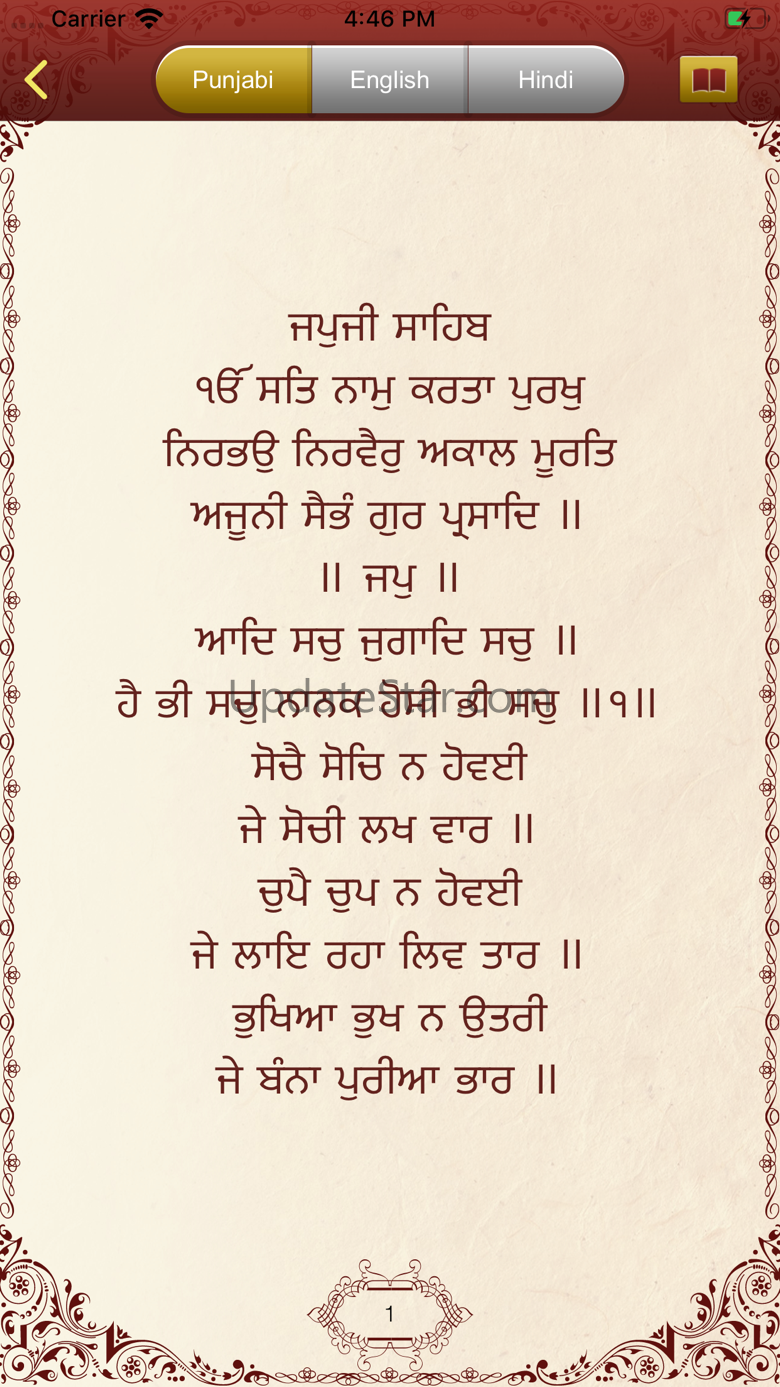 Carrier 4:46 PM
Punjabi English Hindi
ਜਪੁਜੀ ਸਾਹਿਬ
ੴ ਸਤਿ ਨਾਮੁ ਕਰਤਾ ਪੁਰਖੁ
ਨਿਰਭਉ ਨਿਰਵੈਰੁ ਅਕਾਲ ਮੂਰਤਿ
ਅਜੂਨੀ ਸੈਭੰ ਗੁਰ ਪ੍ਰਸਾਦਿ ॥
॥ ਜਪੁ ॥
ਆਦਿ ਸਚੁ ਜੁਗਾਦਿ ਸਚੁ ॥
ਹੈ ਭੀ ਸਚੁ ਨਾਨਕ ਹੋਸੀ ਭੀ ਸਚੁ ॥੧॥
UpdateStar.com
ਸੋਚੈ ਸੋਚਿ ਨ ਹੋਵਈ
ਜੇ ਸੋਚੀ ਲਖ ਵਾਰ ॥
ਚੁਪੈ ਚੁਪ ਨ ਹੋਵਈ
ਜੇ ਲਾਇ ਰਹਾ ਲਿਵ ਤਾਰ ॥
ਭੁਖਿਆ ਭੁਖ ਨ ਉਤਰੀ
ਜੇ ਬੰਨਾ ਪੁਰੀਆ ਭਾਰ ॥
1